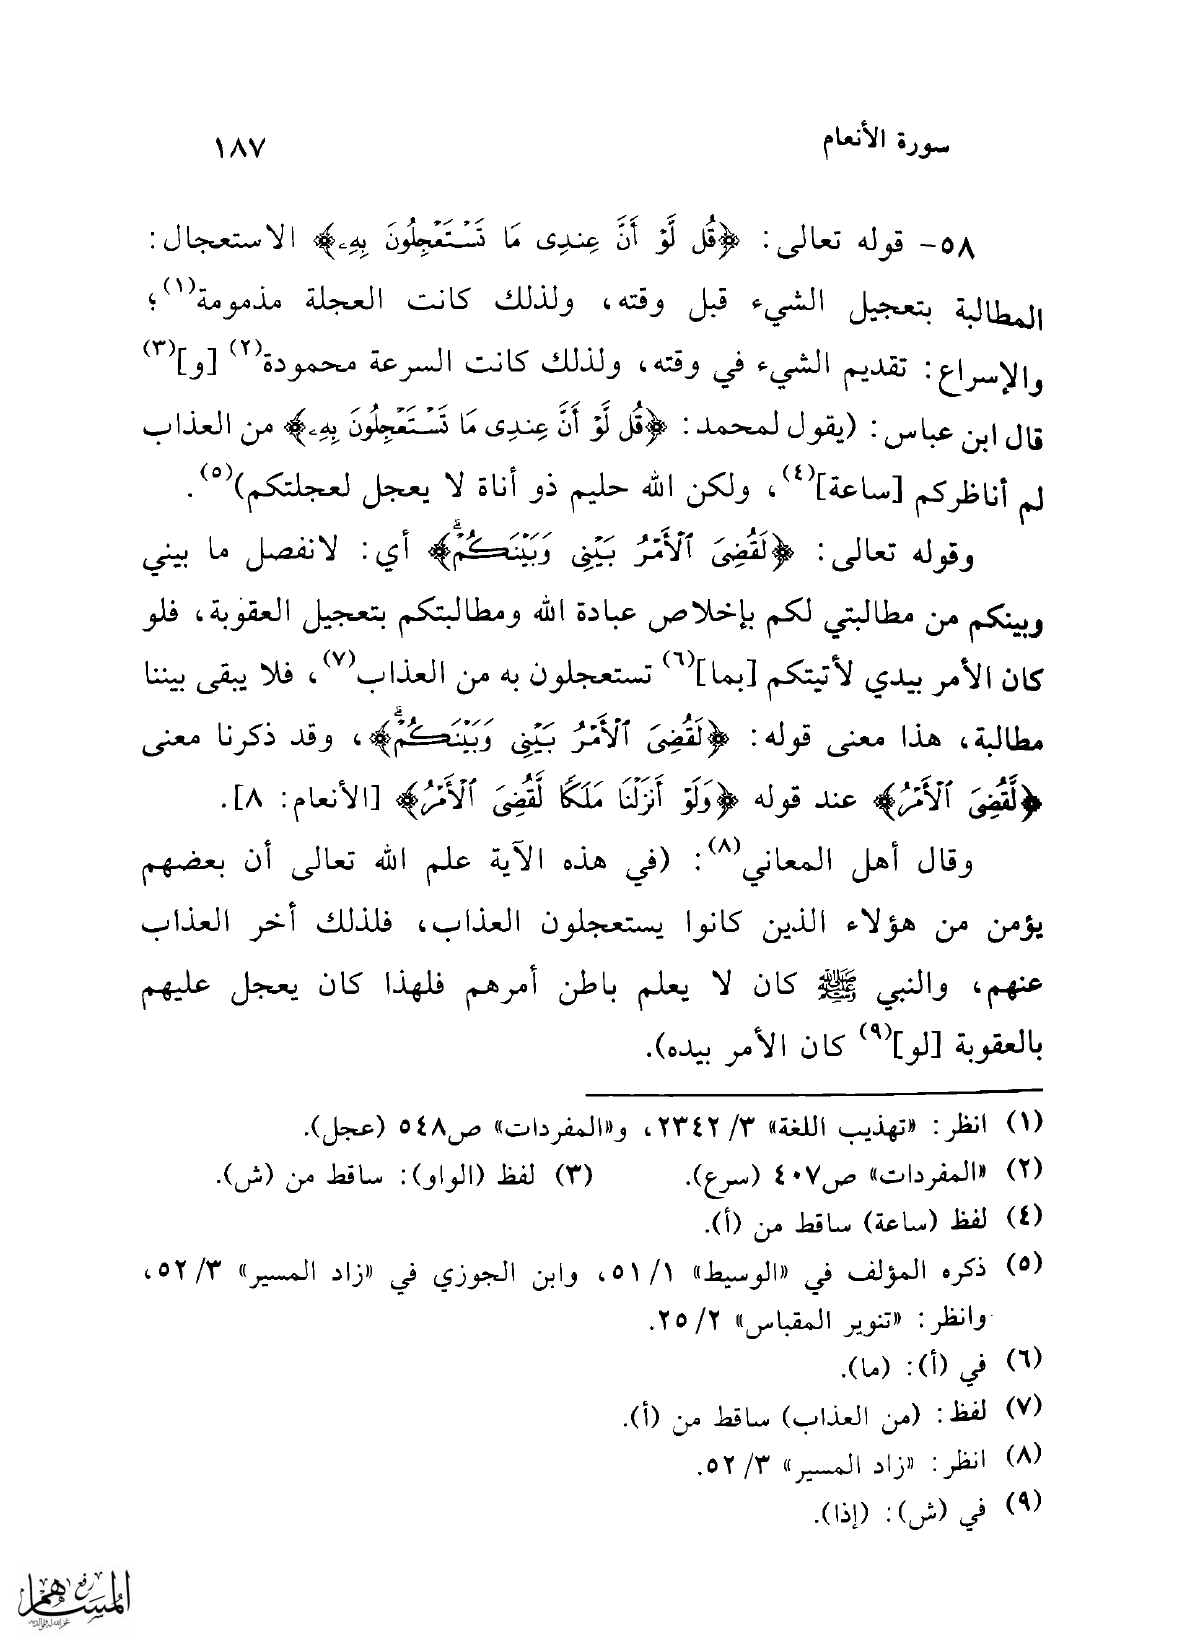 سورة الأنعام ١٨٧
٥٨- قوله تعالى: ﴿قُل لَّوْ أَنَّ عِندِى مَا تَسْتَعْجِلُونَ بِهِۦ﴾ الاستعجال:
المطالبة بتعجيل الشيء قبل وقته، ولذلك كانت العجلة مذمومة(١)؛
والإسراع: تقديم الشيء في وقته، ولذلك كانت السرعة محمودة(٢) [و](٣)
قال ابن عباس: (يقول لمحمد: ﴿قُل لَّوْ أَنَّ عِندِى مَا تَسْتَعْجِلُونَ بِهِۦ﴾ من العذاب
لم أناظركم [ساعة](٤)، ولكن الله حليم ذو أناة لا يعجل لعجلتكم)(٥).
وقوله تعالى: ﴿لَقُضِىَ ٱلْأَمْرُ بَيْنِى وَبَيْنَكُمْۗ﴾ أي: لانفصل ما بيني
وبينكم من مطالبتي لكم بإخلاص عبادة الله ومطالبتكم بتعجيل العقوبة، فلو
كان الأمر بيدي لأتيتكم [بما](٦) تستعجلون به من العذاب(٧)، فلا يبقى بيننا
مطالبة، هذا معنى قوله: ﴿لَقُضِىَ ٱلْأَمْرُ بَيْنِى وَبَيْنَكُمْۗ﴾، وقد ذكرنا معنى
﴿لَّقُضِىَ ٱلْأَمْرُ﴾ عند قوله ﴿وَلَوْ أَنزَلْنَا مَلَكًا لَّقُضِىَ ٱلْأَمْرُ﴾ [الأنعام: ٨].
وقال أهل المعاني(٨): (في هذه الآية علم الله تعالى أن بعضهم
يؤمن من هؤلاء الذين كانوا يستعجلون العذاب، فلذلك أخر العذاب
عنهم، والنبي ﷺ كان لا يعلم باطن أمرهم فلهذا كان يعجل عليهم
بالعقوبة [لو](٩) كان الأمر بيده).
(١) انظر: «تهذيب اللغة» ٣/ ٢٣٤٢، و«المفردات» ص٥٤٨ (عجل).
(٢) «المفردات» ص٤٠٧ (سرع). (٣) لفظ (الواو): ساقط من (ش).
(٤) لفظ (ساعة) ساقط من (أ).
(٥) ذكره المؤلف في «الوسيط» ١/ ٥١، وابن الجوزي في «زاد المسير» ٣/ ٥٢،
وانظر: «تنوير المقباس» ٢/ ٢٥.
(٦) في (أ): (ما).
(٧) لفظ: (من العذاب) ساقط من (أ).
(٨) انظر: «زاد المسير» ٣/ ٥٢.
(٩) في (ش): (إذا).